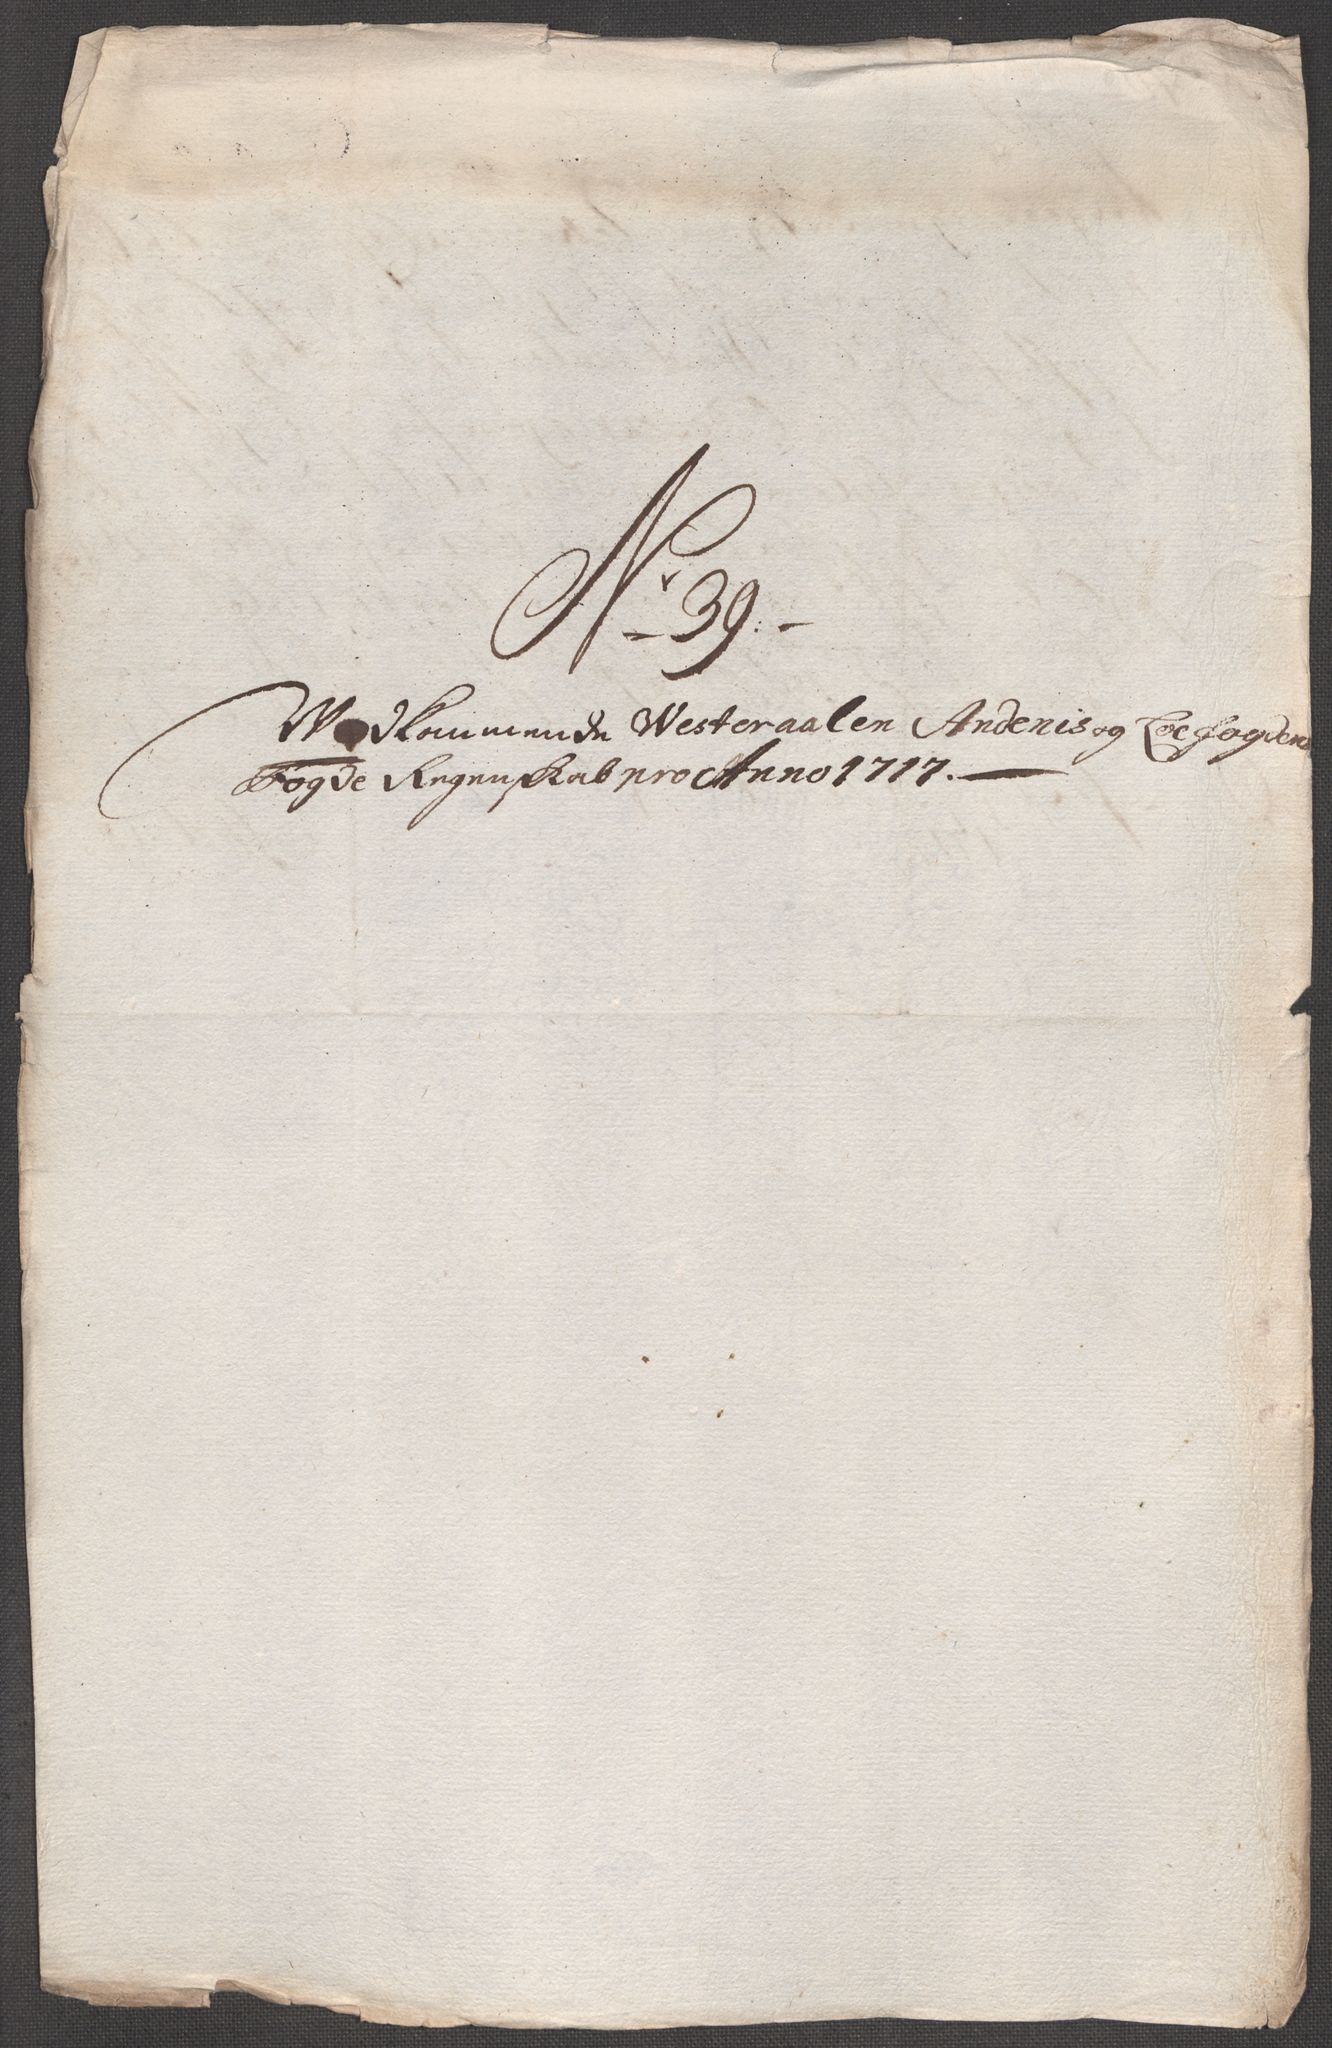 Nr 39.
Wedkommende Westeraalen Andenis og Loefogdens
Fogde Regenskab pro Anno 1717.